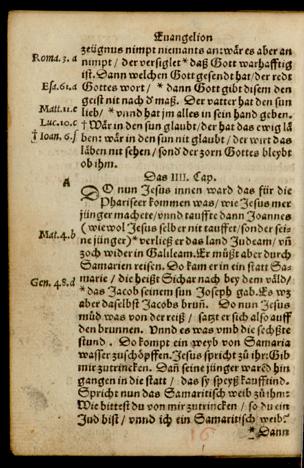 Euangelion
zeügnus nimpt niemants an: wär es aber an
Roma. 3. a
nimpt / der versiglet * daß Gott warhafftig
ist. Dann welchen Gott gesendt hat / der redt
Esa. 61. a
Gottes wort / * dann Gott gibt disem den
geist nit nach d' maß. Der vatter hat den sun
Matt. 11. c
lieb / * vnnd hat jm alles in sein hand geben.
Luc. 10. c
† Wär in den sun glaubt / der hat das ewig lä
† Ioan. 6. f
ben: wär in den sun nit glaubt / der wirt das
läben nit sehen / sond' der zorn Gottes bleybt
ob ihm.
Das IIII. Cap.
A
DO nun Jesus innen ward das für die
Phariseer kommen was / wie Jesus mer
jünger machete / vnnd tauffte dann Joannes
(wiewol Jesus selber nit tauffet / sonder sei-
Mat. 4. b
ne jünger) * verließ er das land Judeam / vñ
zoch wider in Galileam. Er müßt aber durch
Samarien reisen. Do kam er in ein statt Sa-
Gen. 48. d
marie / die heißt Sichar nach bey dem väld /
* das Jacob seinem sun Joseph gab. Es wz
aber daselbst Jacobs brun̄. Do nun Jesus
müd was von der reiß / satzt er sich also auff
den brunnen. Vnnd es was vmb die sechßte
stund. Do kompt ein weyb von Samaria
wasser zuschöpffen. Jesus spricht zů ihr: Gib
mir zutrincken. Dañ seine jünger warēd hin
gangen in die statt / das sy speyß kaufftind.
Spricht nun das Samaritisch weib zů ihm:
Wie bittest du von mir zutrincken / so du ein
Jud bist / vnnd ich ein Samaritisch weib?
16
* Dann